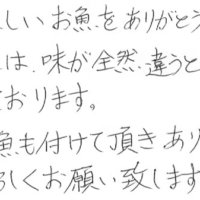 しいお魚をありがとう
は、味が全然違うと
おります。
魚も付けて頂きあり
しくお願い致します